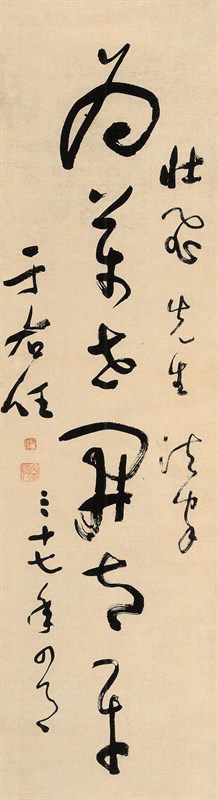 壯飛先生法家
為萬世開太平
三十七年四月
于右任